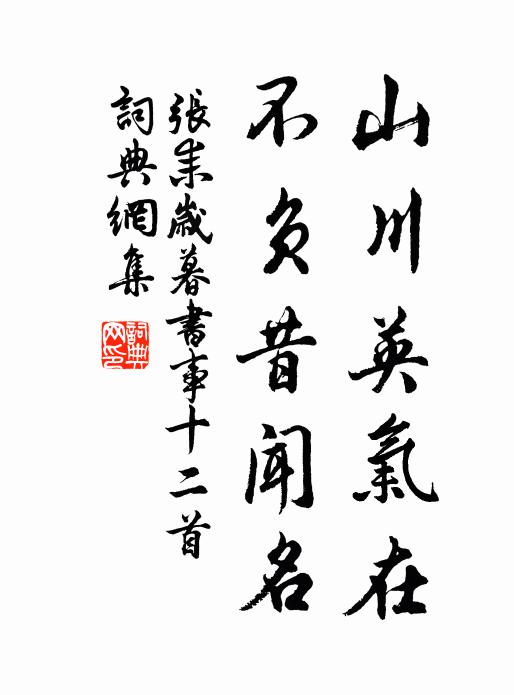 山川英氣在
不負昔聞名
張耒歲暮書事十二首
詞典網集
詞典網印